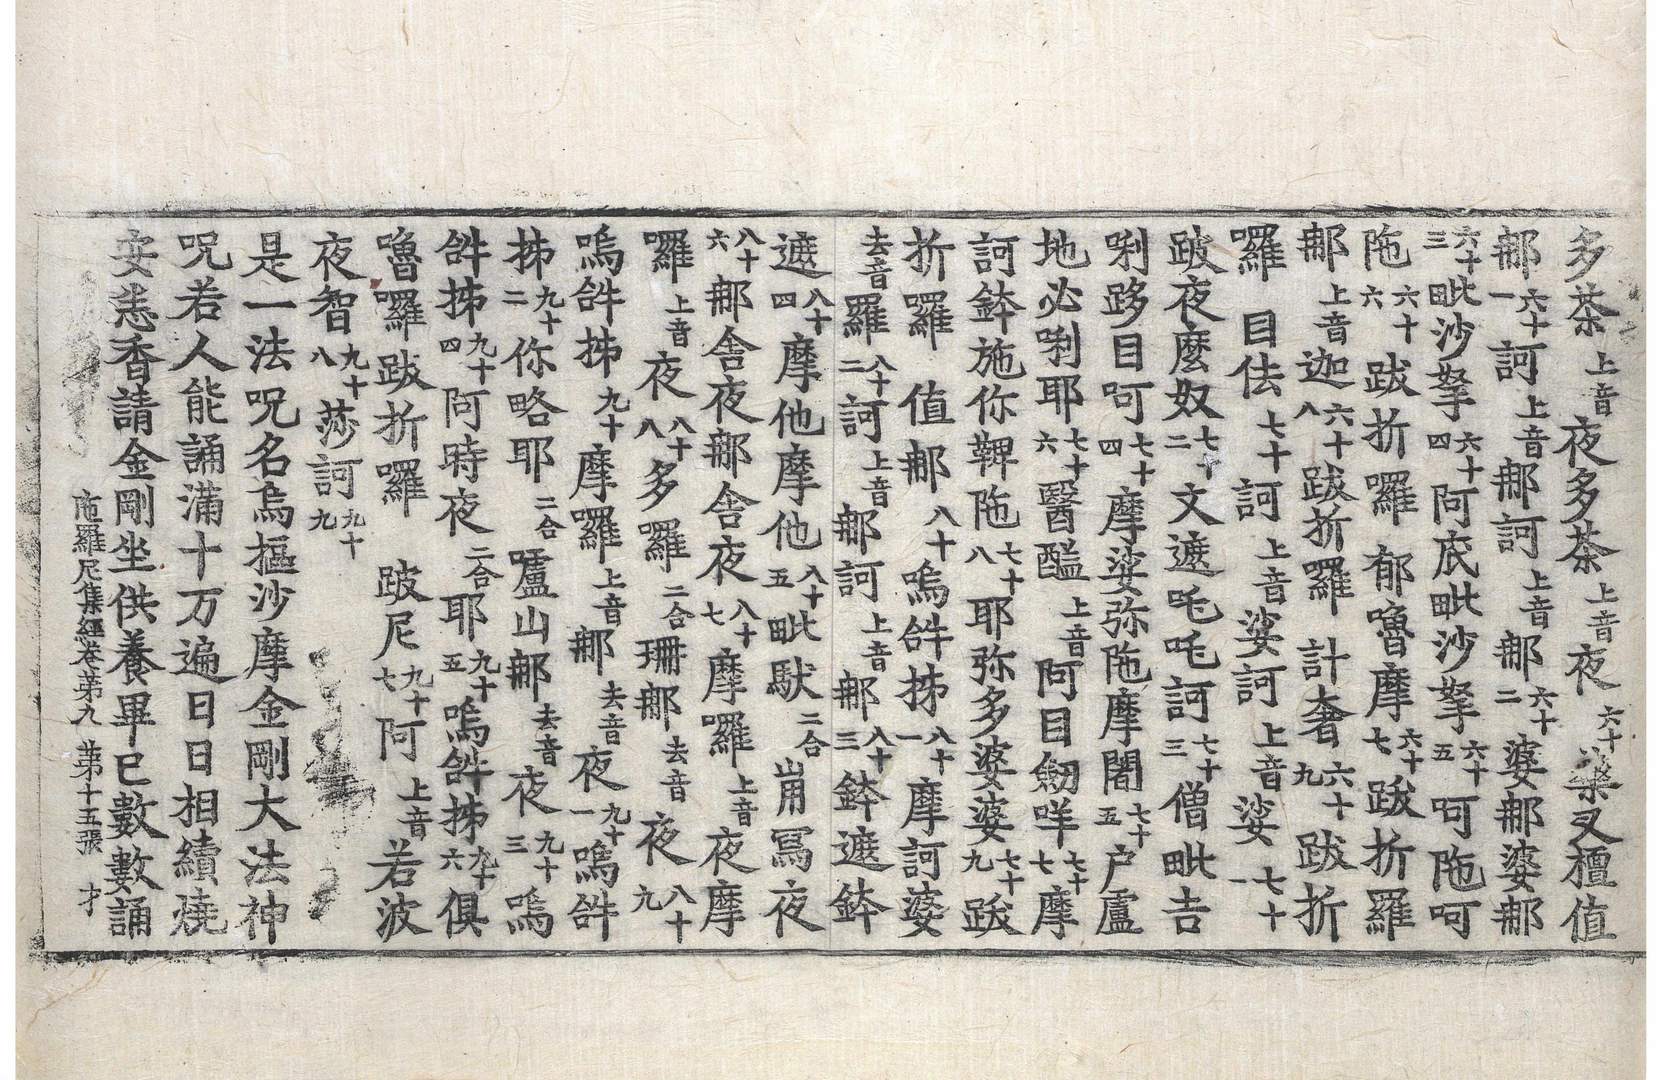 多茶上音夜多茶上音夜六十藥叉檀值
那六十一訶上音那訶上音那六十二婆那婆那
六十三毗沙拏六十四阿底毗沙拏六十五呵陁呵
陁六十六跋折囉郁嚕摩六十七跋折羅
那上音迦六十八跋折囉計奢六十九跋折
囉目佉七十訶上音娑訶上音娑七十一
跛夜麼奴七十二文遮吒吒訶七十三僧毗吉
唎跢目呵四七十摩娑弥陁摩闍七十五户盧
地必唎耶七十六醫醯上音阿目劒咩七十七摩
訶鉢施你鞞陁七十八耶弥多婆婆七十九跋
折囉值那八十嗚𤙖抹八十一摩訶婆
去音羅八十二訶上音那訶上音那八十三鉢遮鉢
遮八十四摩他摩他八十五毗馱二合崩寫夜
八十六那舍夜那舍夜八十七摩囉上音夜摩
囉上音夜八十八多囉二合珊那去音夜八十九
嗚𤙖抹九十摩囉上音那去音夜九十一嗚𤙖
抹九十二你略耶二合嚧山那去音夜九十三嗚
𤙖抹九十四阿時夜二合耶九十五嗚𤙖抹九十六俱
嚕囉跋折囉跛尼九十七阿上音若波
夜智九十八莎訶九十九
是一法呪名烏摳沙摩金剛大法神
呪若人能誦滿十万遍日日相續燒
安悉香請金剛坐供養畢已數數誦
陁羅尼集經卷苐九 苐十五張 才